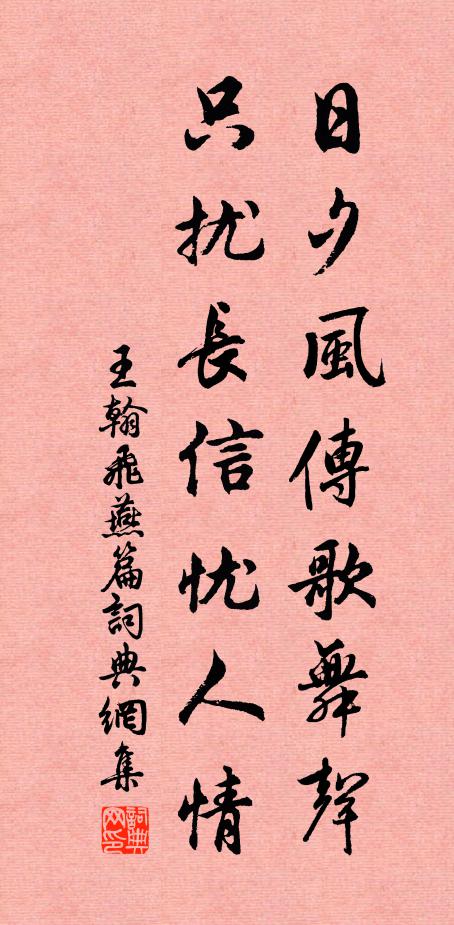 日夕風傳歌舞聲
只扰長信忧人情
王翰飛燕篇詞典網集
詞典网印